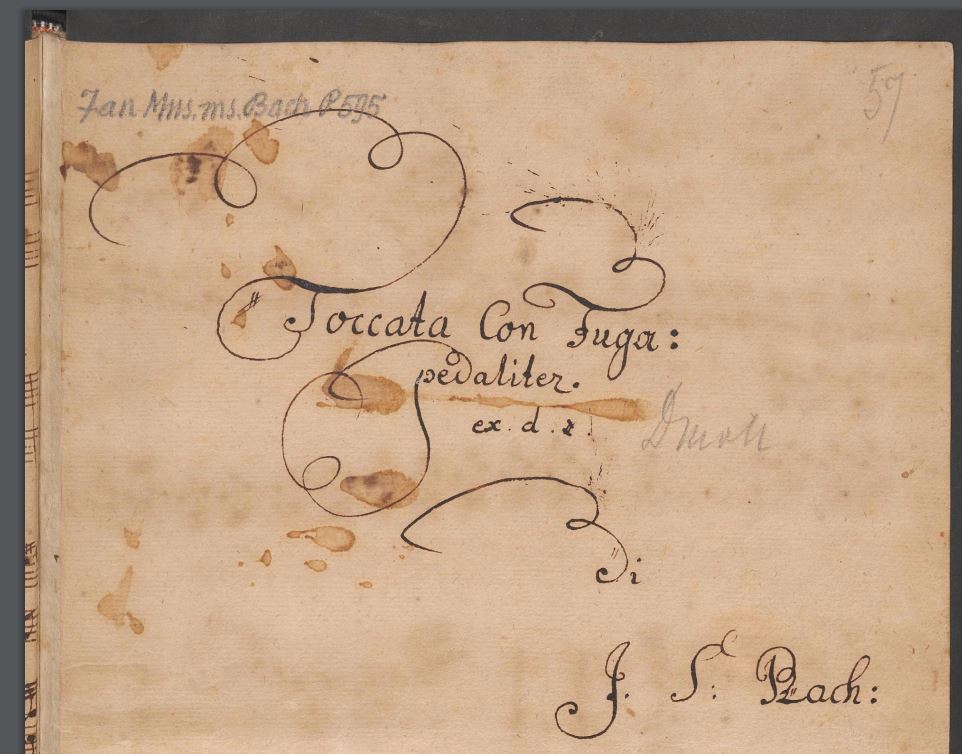 Zan Mus. ms. Bach P 595
57
Toccata Con Fuga:
pedaliter.
ex. d.
Dmoll
Di
J. S: Bach: